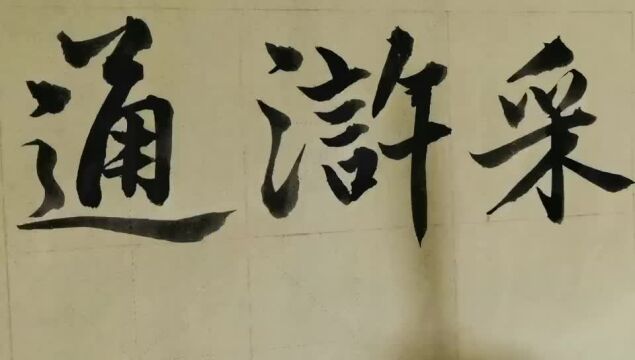 采滸通